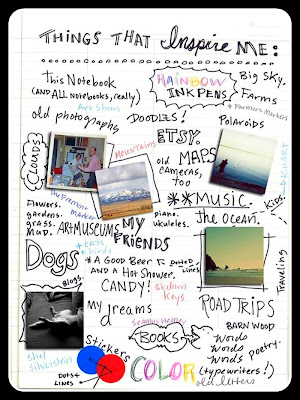 THINGS THAT Inspire ME:
This Notebook
(AND ALL Notebooks, really)
RAINBOW
INK PENS
Big Sky.
Farms
+ Farmers Markets
Art Shows
old photographs
DOODLES!
Polaroids
CLOUDS
MOUNTAINS
ETSY.
old MAPS
cameras,
too
KIDS.
**MUSIC.
piano.
ukuleles.
the Ocean.
Flowers.
gardens.
grass.
MUD.
ART MUSEUMS
MY
FRIENDS
+ CATS
+ birds
DOGS
* A Good Beer
AND A Hot Shower.
Dotted
Lines
Traveling
CANDY!
Skeleton
Keys
Blogs.
My dreams
ROAD TRIPS
BOOKS
BARN WOOD
Words
Words
Words
Poetry.
(typewriters!)
Shel
Silverstein
Stickers
DOTS +
LINES
COLOR
old letters